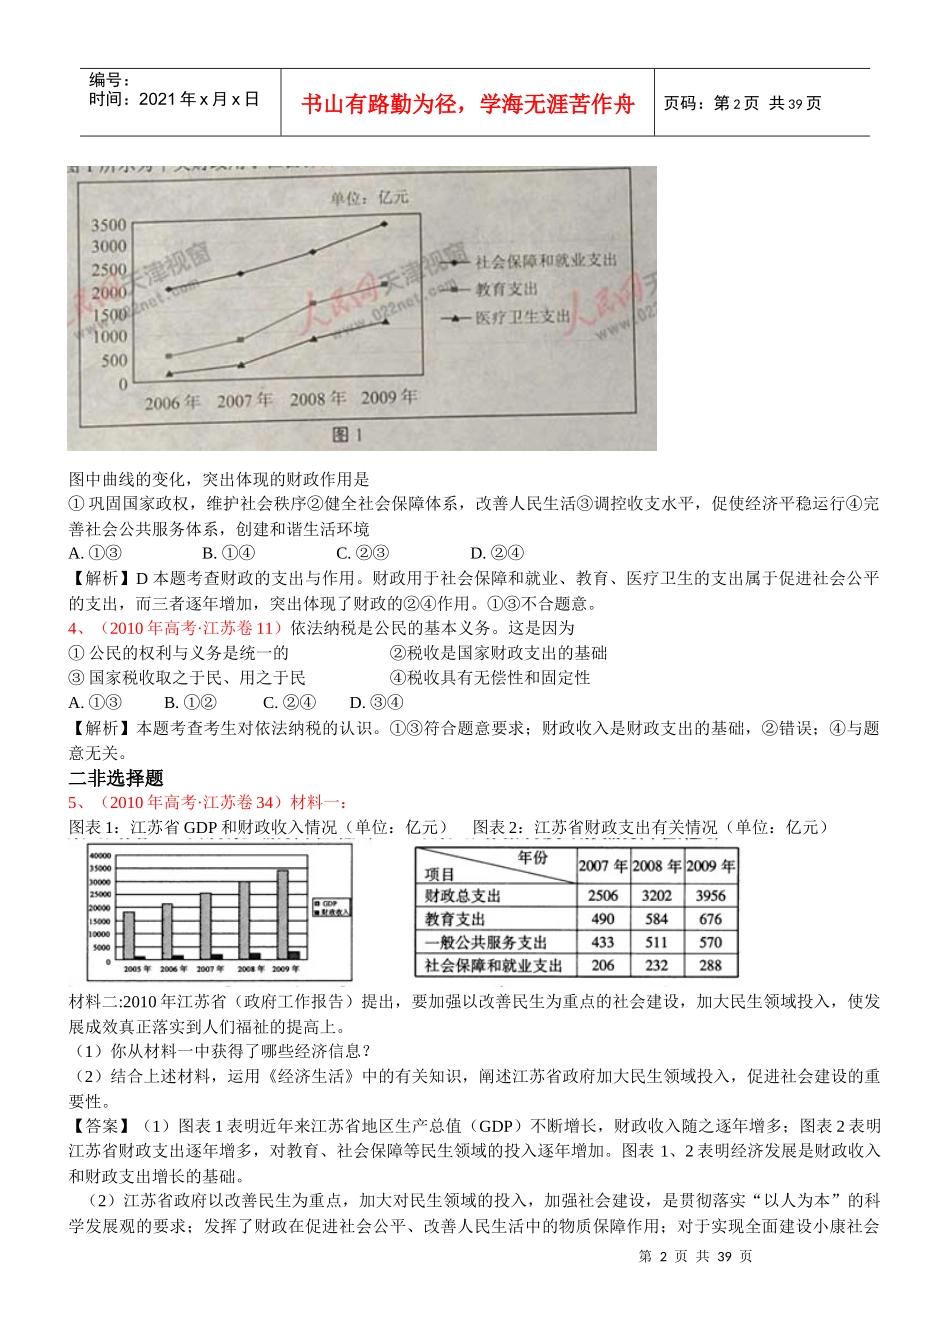 编号：
时间：2021年x月x日
书山有路勤为径，学海无涯苦作舟
页码：第2页 共39页
单位：亿元
3500
3000
2500
2000
1500
1000
500
0
社会保障和就业支出
教育支出
医疗卫生支出
人民网 天津视窗
www.022net.com
2006年 2007年 2008年 2009年
图1
图中曲线的变化，突出体现的财政作用是
① 巩固国家政权，维护社会秩序②健全社会保障体系，改善人民生活③调控收支水平，促使经济平稳运行④完
善社会公共服务体系，创建和谐生活环境
A. ①③ B. ①④ C. ②③ D. ②④
【解析】D 本题考查财政的支出与作用。财政用于社会保障和就业、教育、医疗卫生的支出属于促进社会公平
的支出，而三者逐年增加，突出体现了财政的②④作用。①③不合题意。
4、（2010年高考·江苏卷11）依法纳税是公民的基本义务。这是因为
① 公民的权利与义务是统一的 ②税收是国家财政支出的基础
③ 国家税收取之于民、用之于民 ④税收具有无偿性和固定性
A. ①③ B. ①② C. ②④ D. ③④
【解析】本题考查考生对依法纳税的认识。①③符合题意要求；财政收入是财政支出的基础，②错误；④与题
意无关。
二非选择题
5、（2010年高考·江苏卷34）材料一：
图表1：江苏省GDP和财政收入情况（单位：亿元） 图表2：江苏省财政支出有关情况（单位：亿元）
40000
35000
30000
25000
20000
15000
10000
5000
0
2005年 2006年 2007年 2008年 2009年
GDP
财政收入
项目 年份 2007年 2008年 2009年
财政总支出 2506 3202 3956
教育支出 490 584 676
一般公共服务支出 433 511 570
社会保障和就业支出 206 232 288
材料二:2010年江苏省（政府工作报告）提出，要加强以改善民生为重点的社会建设，加大民生领域投入，使发
展成效真正落实到人们福祉的提高上。
（1）你从材料一中获得了哪些经济信息？
（2）结合上述材料，运用《经济生活》中的有关知识，阐述江苏省政府加大民生领域投入，促进社会建设的重
要性。
【答案】（1）图表1表明近年来江苏省地区生产总值（GDP）不断增长，财政收入随之逐年增多；图表2表明
江苏省财政支出逐年增多，对教育、社会保障等民生领域的投入逐年增加。图表1、2表明经济发展是财政收入
和财政支出增长的基础。
（2）江苏省政府以改善民生为重点，加大对民生领域的投入，加强社会建设，是贯彻落实“以人为本”的科
学发展观的要求；发挥了财政在促进社会公平、改善人民生活中的物质保障作用；对于实现全面建设小康社会
第 2 页 共 39 页